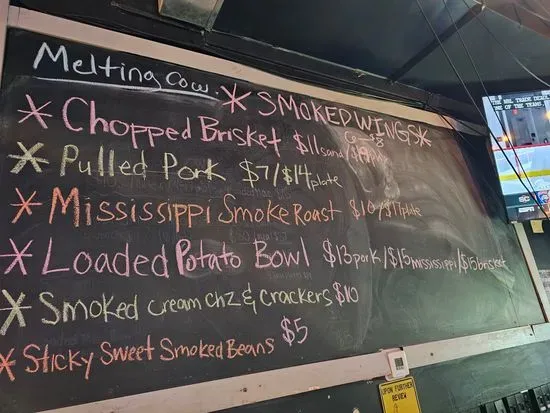 Melting Cow.
* SMOKED WINGS *
* Chopped Brisket $11sand/
* Pulled Pork $7/$14plate
* Mississippi Smoke Roast $10/$17plate
* Loaded Potato Bowl $13pork/$15mississippi/$15brisket
* Smoked cream chz & Crackers $10
* Sticky Sweet Smoked Beans $5
THE NHL TRADE DEAD
ONE OF THE TEAMS
UPON FURTHER
REVIEW